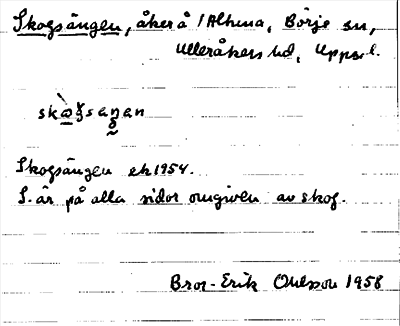 Skogsängen, åker å /Altuna, Börje sn,
Ulleråkers hd, Uppsl.
Skogsängen ek 1954.
S. är på alla sidor omgiven av skog.
Bror-Erik Ohlsson 1958